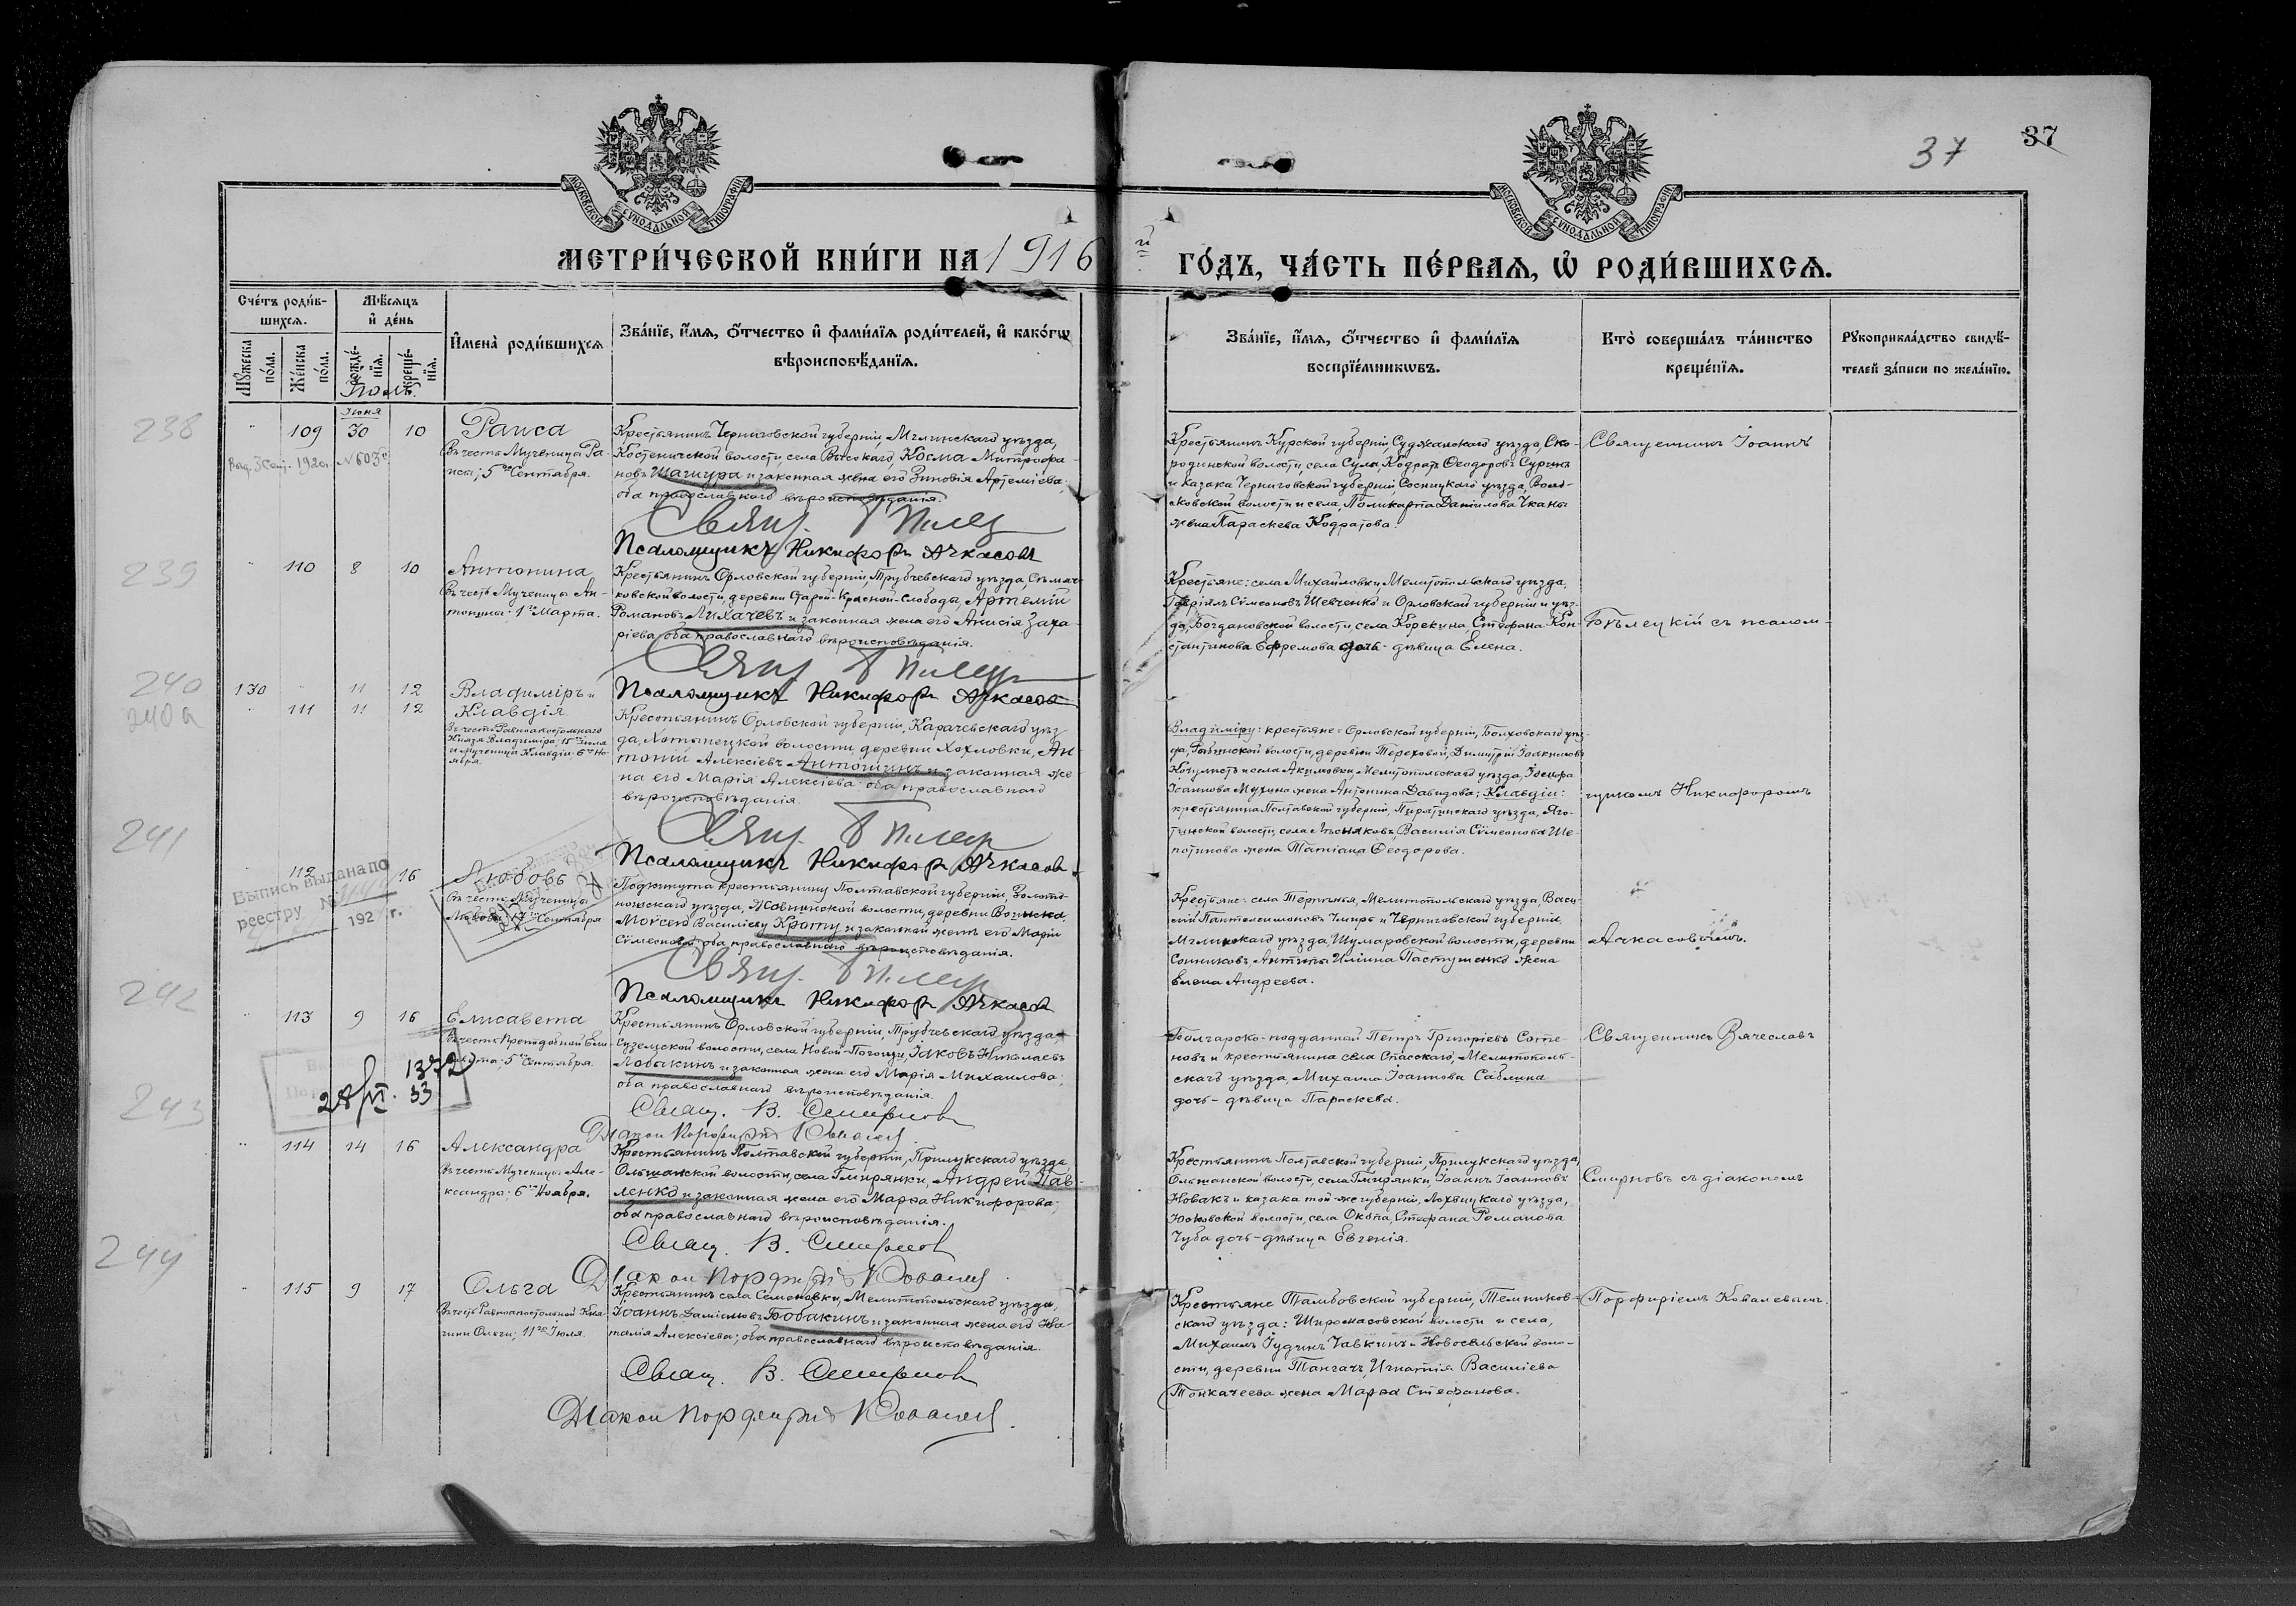 37
37
МОСКОВСКОЙ СУНОДАЛЬНОЙ ТИПОГРАФІИ
МОСКОВСКОЙ СУНОДАЛЬНОЙ ТИПОГРАФІИ
МЕТРИ́ЧЕСКОЙ КНИ́ГИ НА 1916 й ГО́ДЪ, ЧА́СТЬ ПЕ́РВАЯ, Ѡ РОДИ́ВШИХСЯ.
Сче́тъ роди́в-
шихся.
Мꙋ́жеска по́ла.
Же́нска по́ла.
Мѣ́сяцъ
и҆ де́нь
рожде́-
нїя.
креще́-
нїя.
И҆мена̀ роди́вшихся
Зва́нїе, и҆́мя, ѻ҆́тчество и҆ фами́лїя роди́телей, и҆ како́гѡ
вѣроисповѣ́данїя.
Зва́нїе, и҆́мя, ѻ҆́тчество и҆ фами́лїя
воспрїе́мникѡвъ.
Кто̀ соверша́лъ та́инство
креще́нїя.
Рꙋкоприкла́дство свидѣ́-
телей за́писи по жела́нїю.
Іюль.
Іюня
238
109 30 10
Раиса
Въ честь Мученицы Ра-
исы; 5го Сентября.
Крестьянинъ Черниговской губерніи, Мглинскаго уѣзда,
Костеничской волости, села Высокаго, Косма Митрофа-
новъ Шагнура и законная жена его Зиновія Артеміева;
оба православнаго вѣроисповѣданія.
Свящ. І Билец
Псаломщикъ Никифоръ Ачкасов
Крестьянинъ Курской губерніи, Суджанскаго уѣзда, Ско-
родинской волости, села Сула, Кодратъ Ѳеодоровъ Суринъ
и казака Черниговской губерніи, Сосницкаго уѣзда, Воло-
сковской волости и села, Поликарпа Даніилова Чканы
жена Параскева Кодратова.
Священникъ Іоаннъ
239
110 8 10
Антонина
Въ честь Мученицы Ан-
тонины; 1го Марта.
Крестьянинъ Орловской губерніи, Трубчевскаго уѣзда,
ковской волости, деревни Старой-Красной-Слободы, Артемій
Романовъ Лихачевъ и законная жена его Анисія Заха-
ріева; оба православнаго вѣроисповѣданія.
Свящ. І Билец
Псаломщикъ Никифоръ Ачкасов
Крестьяне: села Михайловки, Мелитопольскаго уѣзда,
Гавріилъ Сѵмеоновъ Шевченко и Орловской губерніи и уѣз-
да, Богдановской волости, села Корекина, Стефана Кон-
стантинова Ефремова дочь-дѣвица Елена.
Бѣлецкій съ псалом-
240
240а
130 11 12
111 11 12
Владиміръ и
Клавдія
Въ честь Равноапостольнаго
Князя Владиміра; 15го Іюля
и Мученицы Клавдіи; 6го Но-
ября.
Крестьянинъ Орловской губерніи, Карачевскаго уѣз-
да, Хотынецкой волости, деревни Хохловки, Ан-
тоній Алексіевъ Антошинъ и законная же-
на его Марія Алексіева; оба православнаго
вѣроисповѣданія.
Свящ. І Билец
Псаломщикъ Никифоръ Ачкасов
Владиміру: крестьяне: Орловской губерніи, Болховскаго уѣз-
да, волости, деревни Тереховой, Димитрій Іоакимовъ
и села Акимовки, Мелитопольскаго уѣзда,
Іоаннова Мухина жена Антонина Давидова; Клавдіи:
крестьянина Полтавской губерніи, Пирятинскаго уѣзда, Яго-
тинской волости, села Лѣсняковъ, Василія Сѵмеонова Ше-
потинова жена Татіана Ѳеодорова.
щикомъ Никифоромъ
241
112 16
Выпись выдана по
реестру №
192 г.
Любовь
Въ честь Мученицы
Любови; 17го Сентября
Подкинута крестьянину Полтавской губерніи, Золото-
ношскаго уѣзда, Жовнинской волости, деревни Воинска,
Моисею Василіеву Кроту и законной женѣ его Маріи
Сѵмеоновой; оба православнаго вѣроисповѣданія.
Свящ. І Билец
Псаломщикъ Никифоръ Ачкасов
Крестьяне: села Терпѣнья, Мелитопольскаго уѣзда, Васи-
лій Пантелеимоновъ и Черниговской губерніи,
Мглинскаго уѣзда, Шумаровской волости, деревни
Сонниковъ, Антипы Иліина Пастушенко жена
Елена Андреева.
Ачкасовымъ.
242
113 9 16
Елисавета
Въ честь Преподобной Ели-
саветы; 5го Сентября.
1372
28/VI. 33
Крестьянинъ Орловской губерніи, Трубчевскаго уѣзда,
Суземской волости, села Новой-Погощи, Іаковъ Николаевъ
Лобакинъ и законная жена его Марія Михаилова;
оба православнаго вѣроисповѣданія.
Свящ. В. Смирнов
Діакон Порфирій Ковалев
Болгарско-подданной Петръ Григоріевъ Соте-
новъ и крестьянина села Спаскаго, Мелитополь-
скаго уѣзда, Михаила Іоаннова Саблина
дочь-дѣвица Параскева.
Священникъ Вячеславъ
243
114 14 16
Александра
Въ честь Мученицы Але-
ксандры; 6го Ноября.
Крестьянинъ Полтавской губерніи, Прилукскаго уѣзда,
Ольшанской волости, села Гмирянки, Андрей Пав-
ленко и законная жена его Марѳа Никифорова;
оба православнаго вѣроисповѣданія.
Свящ. В. Смирнов
Діакон Порфирій Ковалев
Крестьянинъ Полтавской губерніи, Прилукскаго уѣзда,
Ольшанской волости, села Гмирянки, Іоаннъ Іоанновъ
Новакъ и казака той-же губерніи, Лохвицкаго уѣзда,
Юсковской волости, села Окопа, Стефана Романова
Чуба дочь-дѣвица Евгенія.
Смирновъ съ діакономъ
244
115 9 17
Ольга
Въ честь Равноапостольной Кня-
гини Ольги; 11го Іюля.
Крестьянинъ села Семеновки, Мелитопольскаго уѣзда,
Іоаннъ Даміановъ Бобакинъ и законная жена его На-
талія Алексіева; оба православнаго вѣроисповѣданія.
Свящ. В. Смирнов
Діакон Порфирій Ковалев
Крестьяне Тамбовской губерніи, Темников-
скаго уѣзда: Широмасовской волости и села,
Михаилъ Іудинъ Чавкинъ и Новосельской воло-
сти, деревни Тангачъ, Игнатія Василіева
Тонкачеева жена Марѳа Стефанова.
Порфиріемъ Ковалевымъ.